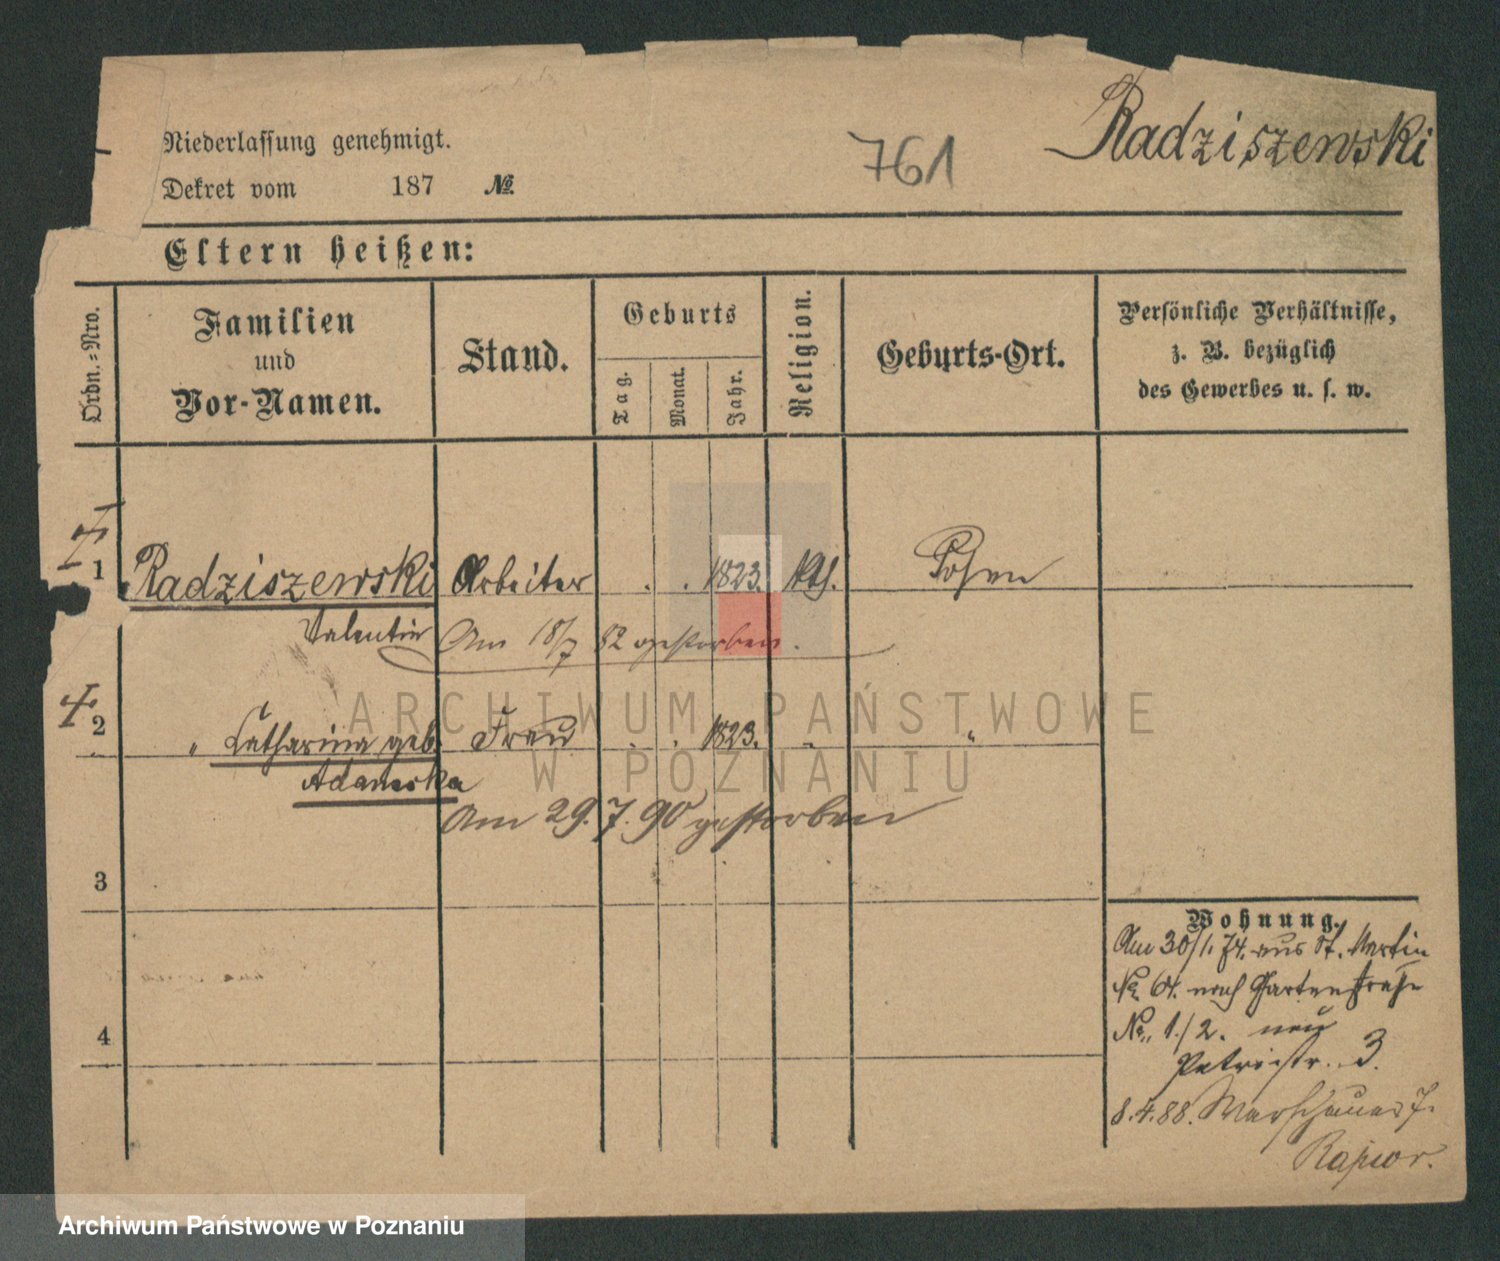 Radziszewski
761
Niederlassung genehmigt.
Dekret vom 187 №.
Eltern heißen:
Ordn.-Nro.
Familien
und
Vor-Namen.
Stand.
Geburts
Tag.
Monat.
Jahr.
Religion.
Geburts-Ort.
Persönliche Verhältnisse,
z. B. bezüglich
des Gewerbes u. s. w.
1 Radziszewski Arbeiter . . 1823. kth. Posen
Valentin Am 18/7 82 gestorben.
2 " Catharina geb. Frau . . 1823. " "
Adamska
Am 29.7.90 gestorben
3
4
Wohnung.
Am 30/1.74. aus St. Martin
No. 64. nach Gartenstraße
No. 1./2. neu
Petristr. 3.
8.4.88. Warschauer
ARCHIWUM PAŃSTWOWE
W POZNANIU
Archiwum Państwowe w Poznaniu